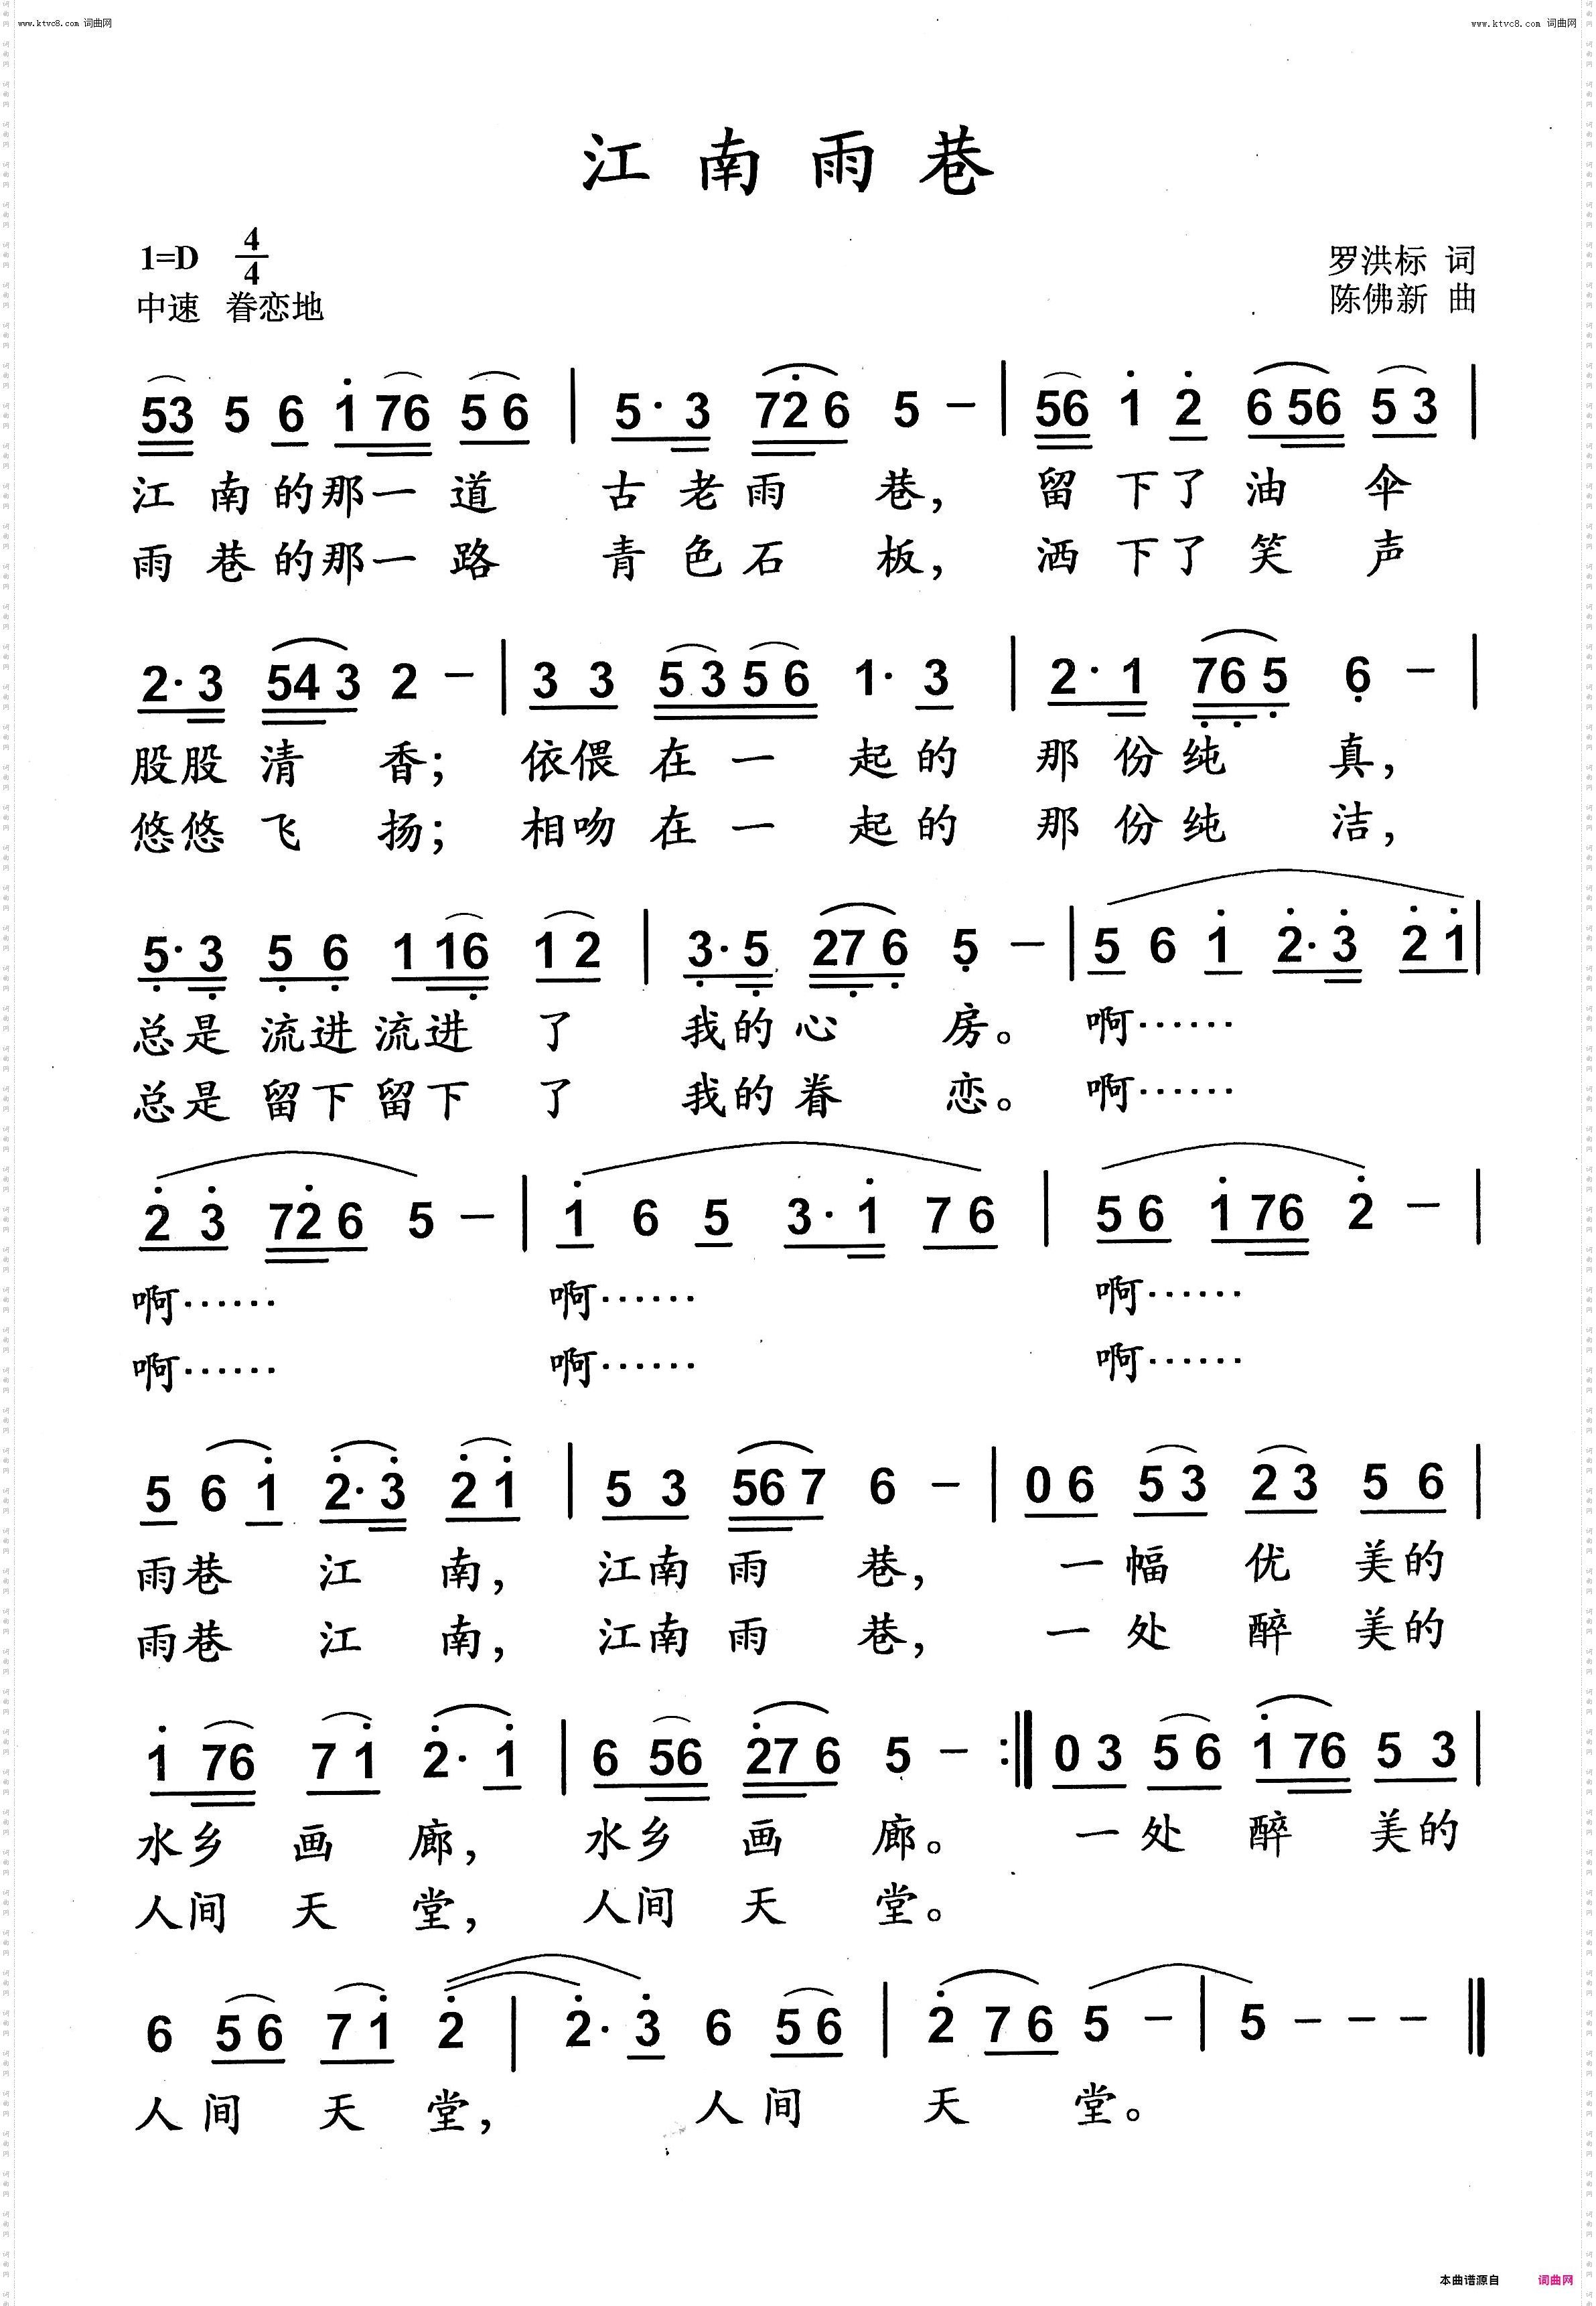 www.ktvc8.com 词曲网 www.ktvc8.com 词曲网
江南雨巷
1=D 4/4 罗洪标 词
中速 眷恋地 陈佛新 曲
53 5 6 1̇ 76 5 6 | 5· 3 72̇ 6 5 – | 56 1̇ 2̇ 6 56 5 3 |
江 南 的 那 一 道 古 老 雨 巷, 留 下 了 油 伞
雨 巷 的 那 一 路 青 色 石 板, 洒 下 了 笑 声
2· 3 54 3 2 – | 3 3 5 3 5 6 1· 3 | 2· 1 7̣6̣ 5̣ 6̣ – |
股股 清 香; 依偎 在 一 起 的 那 份 纯 真,
悠悠 飞 扬; 相吻 在 一 起 的 那 份 纯 洁,
5̣· 3̣ 5̣ 6̣ 1 16̣ 1 2 | 3̣· 5̣ 27̣ 6̣ 5̣ – | 5 6 1̇ 2̇· 3̇ 2̇ 1̇ |
总是 流进 流进 了 我的 心 房。 啊……
总是 留下 留下 了 我的 眷 恋。 啊……
2̇ 3̇ 72̇ 6 5 – | 1̇ 6 5 3· 1̇ 7 6 | 5 6 1̇ 76 2̇ – |
啊…… 啊…… 啊……
啊…… 啊…… 啊……
5 6 1̇ 2̇· 3̇ 2̇ 1̇ | 5 3 56 7 6 – | 0 6 5 3 2 3 5 6 |
雨巷 江 南, 江南 雨 巷, 一 幅 优 美的
雨巷 江 南, 江南 雨 巷, 一 处 醉 美的
1̇ 76 7 1̇ 2̇· 1̇ | 6 56 2̇7 6 5 – :‖ 0 3 5 6 1̇ 76 5 3 |
水乡 画 廊, 水乡 画 廊。 一 处 醉 美的
人间 天 堂, 人间 天 堂。
6 5 6 7 1̇ 2̇ | 2̇· 3̇ 6 5 6 | 2̇ 7 6 5 – | 5 – – – ‖
人 间 天 堂, 人 间 天 堂。
本曲谱源自 词曲网